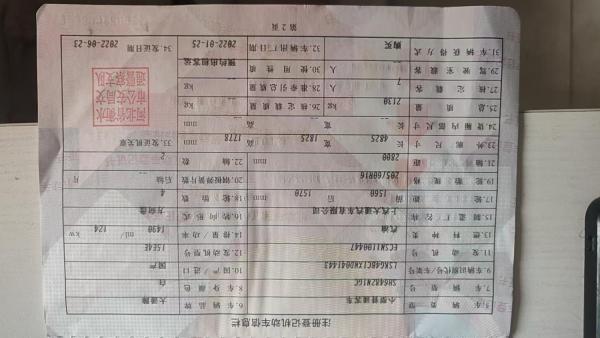 注册登记机动车信息栏
5.车辆类型 小型普通客车 6.车辆品牌 大通牌
7.车辆型号 SH6482N1GC 8.车身颜色 白
9.车辆识别代号/车架号 10.国产/进口 国产
11.发动机号 12.发动机型号 15E4E
13.燃料种类 汽油 14.排量/功率 1490 ml/ 124 kw
15.制造厂名称 上汽大通汽车有限公司 16.转向形式 方向盘
17.轮距 前 1560 后 1570 mm 18.轮胎数 4
19.轮胎规格 205/60R16 20.钢板弹簧片数 后轴 片
21.轴距 2800 mm 22.轴数 2
23.外廓尺寸 长 4825 宽 1825 高 1778 mm 33.发证机关章
24.货厢内部尺寸 长 宽 高 mm
25.总质量 2130 kg 26.核定载质量 kg
27.核定载客 7 人 28.准牵引总质量 kg
29.驾驶室载客 人 30.使用性质 预约出租客运
31.车辆获得方式 购买 32.车辆出厂日期 2022-01-25 34.发证日期 2022-06-23
河北省衡水
市公安局交
通警察支队
第2页